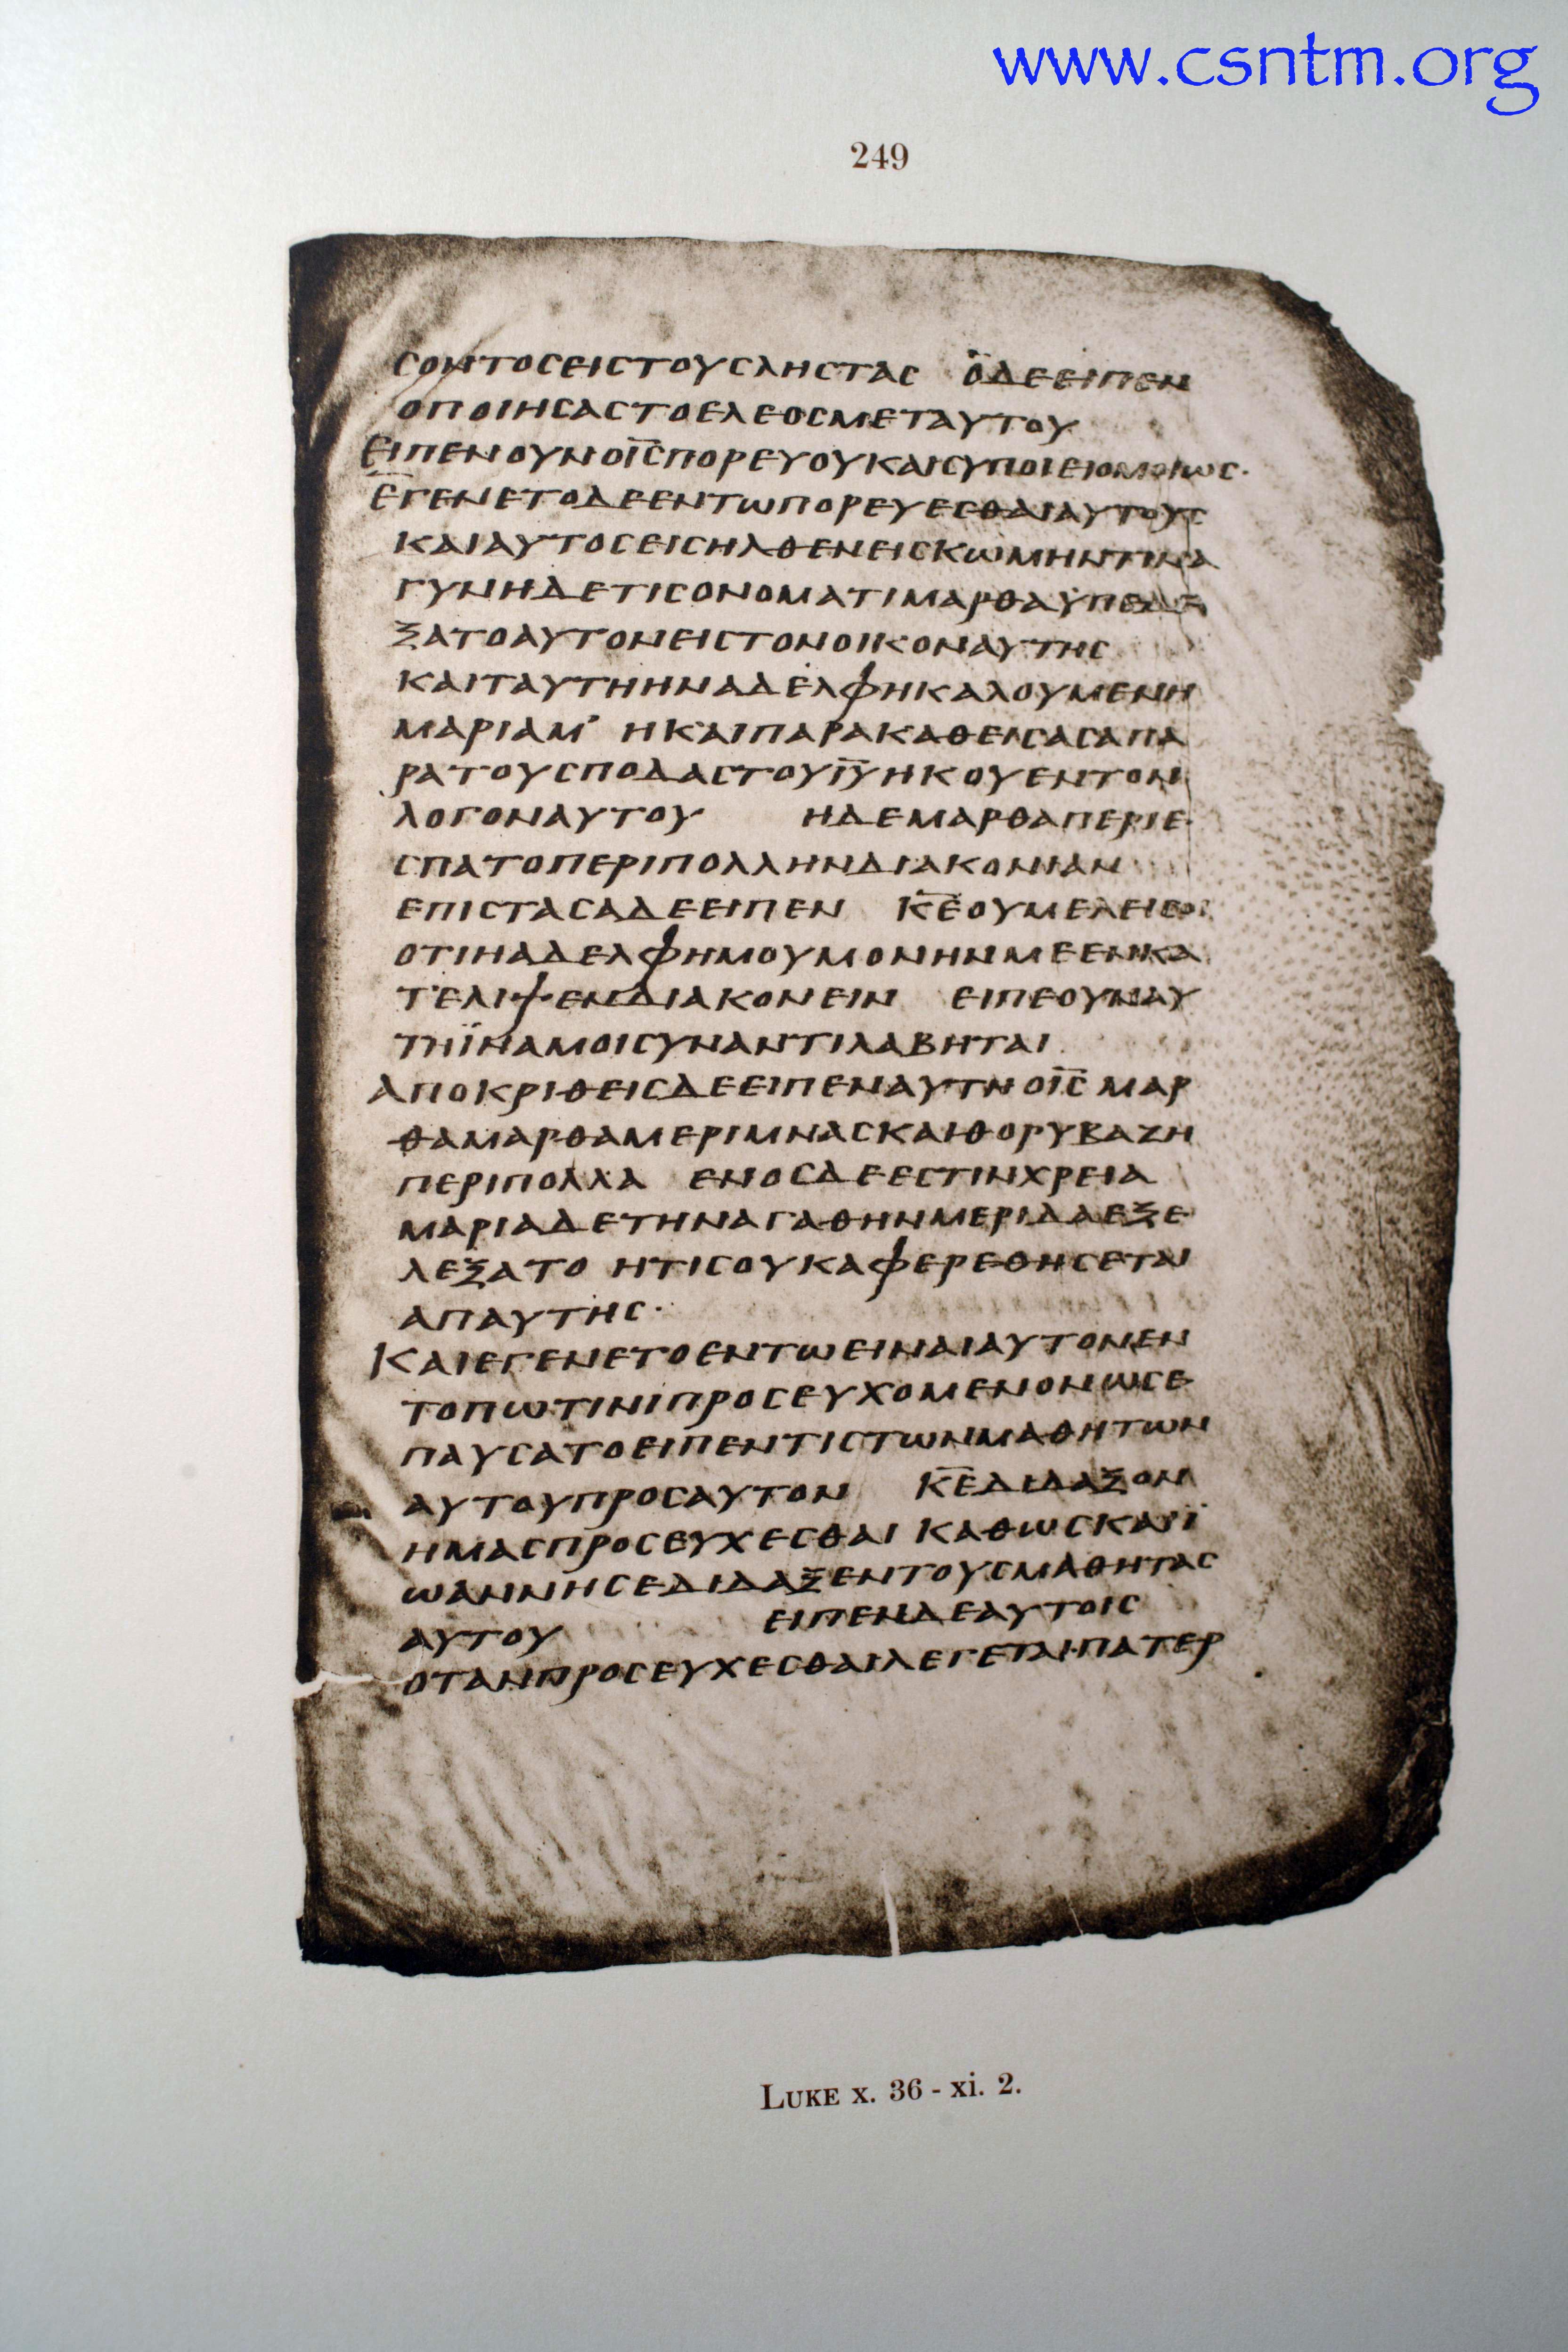 www.csntm.org
249
ϹΟΝΤΟϹΕΙϹΤΟΥϹΛΗϹΤΑϹ ὉΔΕΕΙΠΕΝ
ΟΠΟΙΗϹΑϹΤΟΕΛΕΟϹΜΕΤΑΥΤΟΥ
ΕΙΠΕΝΟΥΝΟΙ̅Ϲ̅ΠΟΡΕΥΟΥΚΑΙϹΥΠΟΙΕΙΟΜΟΙΩϹ·
ΕΓΕΝΕΤΟΔΕΕΝΤΩΠΟΡΕΥΕϹΘΑΙΑΥΤΟΥϹ
ΚΑΙΑΥΤΟϹΕΙϹΗΛΘΕΝΕΙϹΚΩΜΗΝΤΙΝΑ
ΓΥΝΗΔΕΤΙϹΟΝΟΜΑΤΙΜΑΡΘΑΫΠΕΔΕ
ΞΑΤΟΑΥΤΟΝΕΙϹΤΟΝΟΙΚΟΝΑΥΤΗϹ
ΚΑΙΤΑΥΤΗΗΝΑΔΕΛΦΗΚΑΛΟΥΜΕΝΗ
ΜΑΡΙΑΜ’ ΗΚΑΙΠΑΡΑΚΑΘΕΙϹΑϹΑΠΑ
ΡΑΤΟΥϹΠΟΔΑϹΤΟΥΙ̅Υ̅ΗΚΟΥΕΝΤΟΝ
ΛΟΓΟΝΑΥΤΟΥ ΗΔΕΜΑΡΘΑΠΕΡΙΕ
ϹΠΑΤΟΠΕΡΙΠΟΛΛΗΝΔΙΑΚΟΝΙΑΝ
ΕΠΙϹΤΑϹΑΔΕΕΙΠΕΝ Κ̅Ε̅ΟΥΜΕΛΕΙϹΟΙ
ΟΤΙΗΑΔΕΛΦΗΜΟΥΜΟΝΗΝΜΕΕΝΚΑ
ΤΕΛΙΨΕΝΔΙΑΚΟΝΕΙΝ ΕΙΠΕΟΥΝΑΥ
ΤΗΪΝΑΜΟΙϹΥΝΑΝΤΙΛΑΒΗΤΑΙ
ΑΠΟΚΡΙΘΕΙϹΔΕΕΙΠΕΝΑΥΤΗΟΙ̅Ϲ̅ ΜΑΡ
ΘΑΜΑΡΘΑΜΕΡΙΜΝΑϹΚΑΙΘΟΡΥΒΑΖΗ
ΠΕΡΙΠΟΛΛΑ ΕΝΟϹΔΕΕϹΤΙΝΧΡΕΙΑ
ΜΑΡΙΑΔΕΤΗΝΑΓΑΘΗΝΜΕΡΙΔΑΕΞΕ
ΛΕΞΑΤΟ ΗΤΙϹΟΥΚΑΦΕΡΕΘΗϹΕΤΑΙ
ΑΠΑΥΤΗϹ·
ΚΑΙΕΓΕΝΕΤΟΕΝΤΩΕΙΝΑΙΑΥΤΟΝΕΝ
ΤΟΠΩΤΙΝΙΠΡΟϹΕΥΧΟΜΕΝΟΝΩϹΕ
ΠΑΥϹΑΤΟΕΙΠΕΝΤΙϹΤΩΝΜΑΘΗΤΩΝ
ΑΥΤΟΥΠΡΟϹΑΥΤΟΝ Κ̅Ε̅ΔΙΔΑΞΟΝ
ΗΜΑϹΠΡΟϹΕΥΧΕϹΘΑΙ ΚΑΘΩϹΚΑΙΪ
ΩΑΝΝΗϹΕΔΙΔΑΞΕΝΤΟΥϹΜΑΘΗΤΑϹ
ΑΥΤΟΥ ΕΙΠΕΝΔΕΑΥΤΟΙϹ
ΟΤΑΝΠΡΟϹΕΥΧΕϹΘΑΙΛΕΓΕΤΑΙΠΑΤΕΡ
LUKE x. 36 - xi. 2.